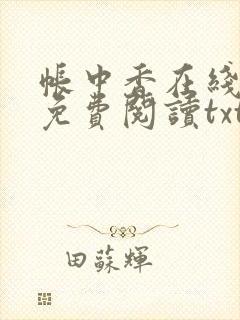 帳中香在綫
免費閱讀txt
田蘇輝